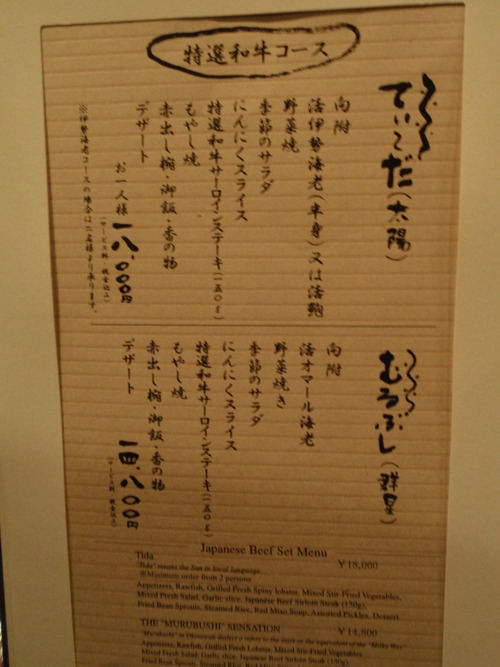 特選和牛コース
てぃーだ(太陽)
向附
活伊勢海老(半身)又は活鮑
野菜焼
季節のサラダ
にんにくスライス
特選和牛サーロインステーキ(一五〇g)
もやし焼
赤出し椀・御飯・香の物
デザート
お一人様 一八、〇〇〇円
(サービス料・税金込み)
※伊勢海老コースの場合は二名様より承ります。
むるぶし(群星)
向附
活オマール海老
野菜焼き
季節のサラダ
にんにくスライス
特選和牛サーロインステーキ(一五〇g)
もやし焼
赤出し椀・御飯・香の物
デザート
一四、八〇〇円
(サービス料・税金込み)
Japanese Beef Set Menu
Tida ￥18,000
"Tida" means the Sun in local language...
※Minimum order from 2 persons
Appetizers, Rawfish, Grilled Fresh Spiny lobster, Mixed Stir-Fried Vegetables,
Mixed Fresh Salad, Garlic slice, Japanese Beef Sirloin Steak (150g),
Fried Bean Sprouts, Steamed Rice, Red Miso Soup, Assorted Pickles, Dessert
THE "MURUBUSHI" SENSATION ￥14,800
"Murubushi" in Okinawan dialect refers to the stars or the equivalent of the "Milky Way"
Appetizers, Rawfish, Grilled Fresh Lobster, Mixed Stir-Fried Vegetables
Mixed Fresh Salad, Garlic slice, Japanese Beef Sirloin Steak (150g)
Fried Bean Sprouts, Steamed Rice, Red Miso